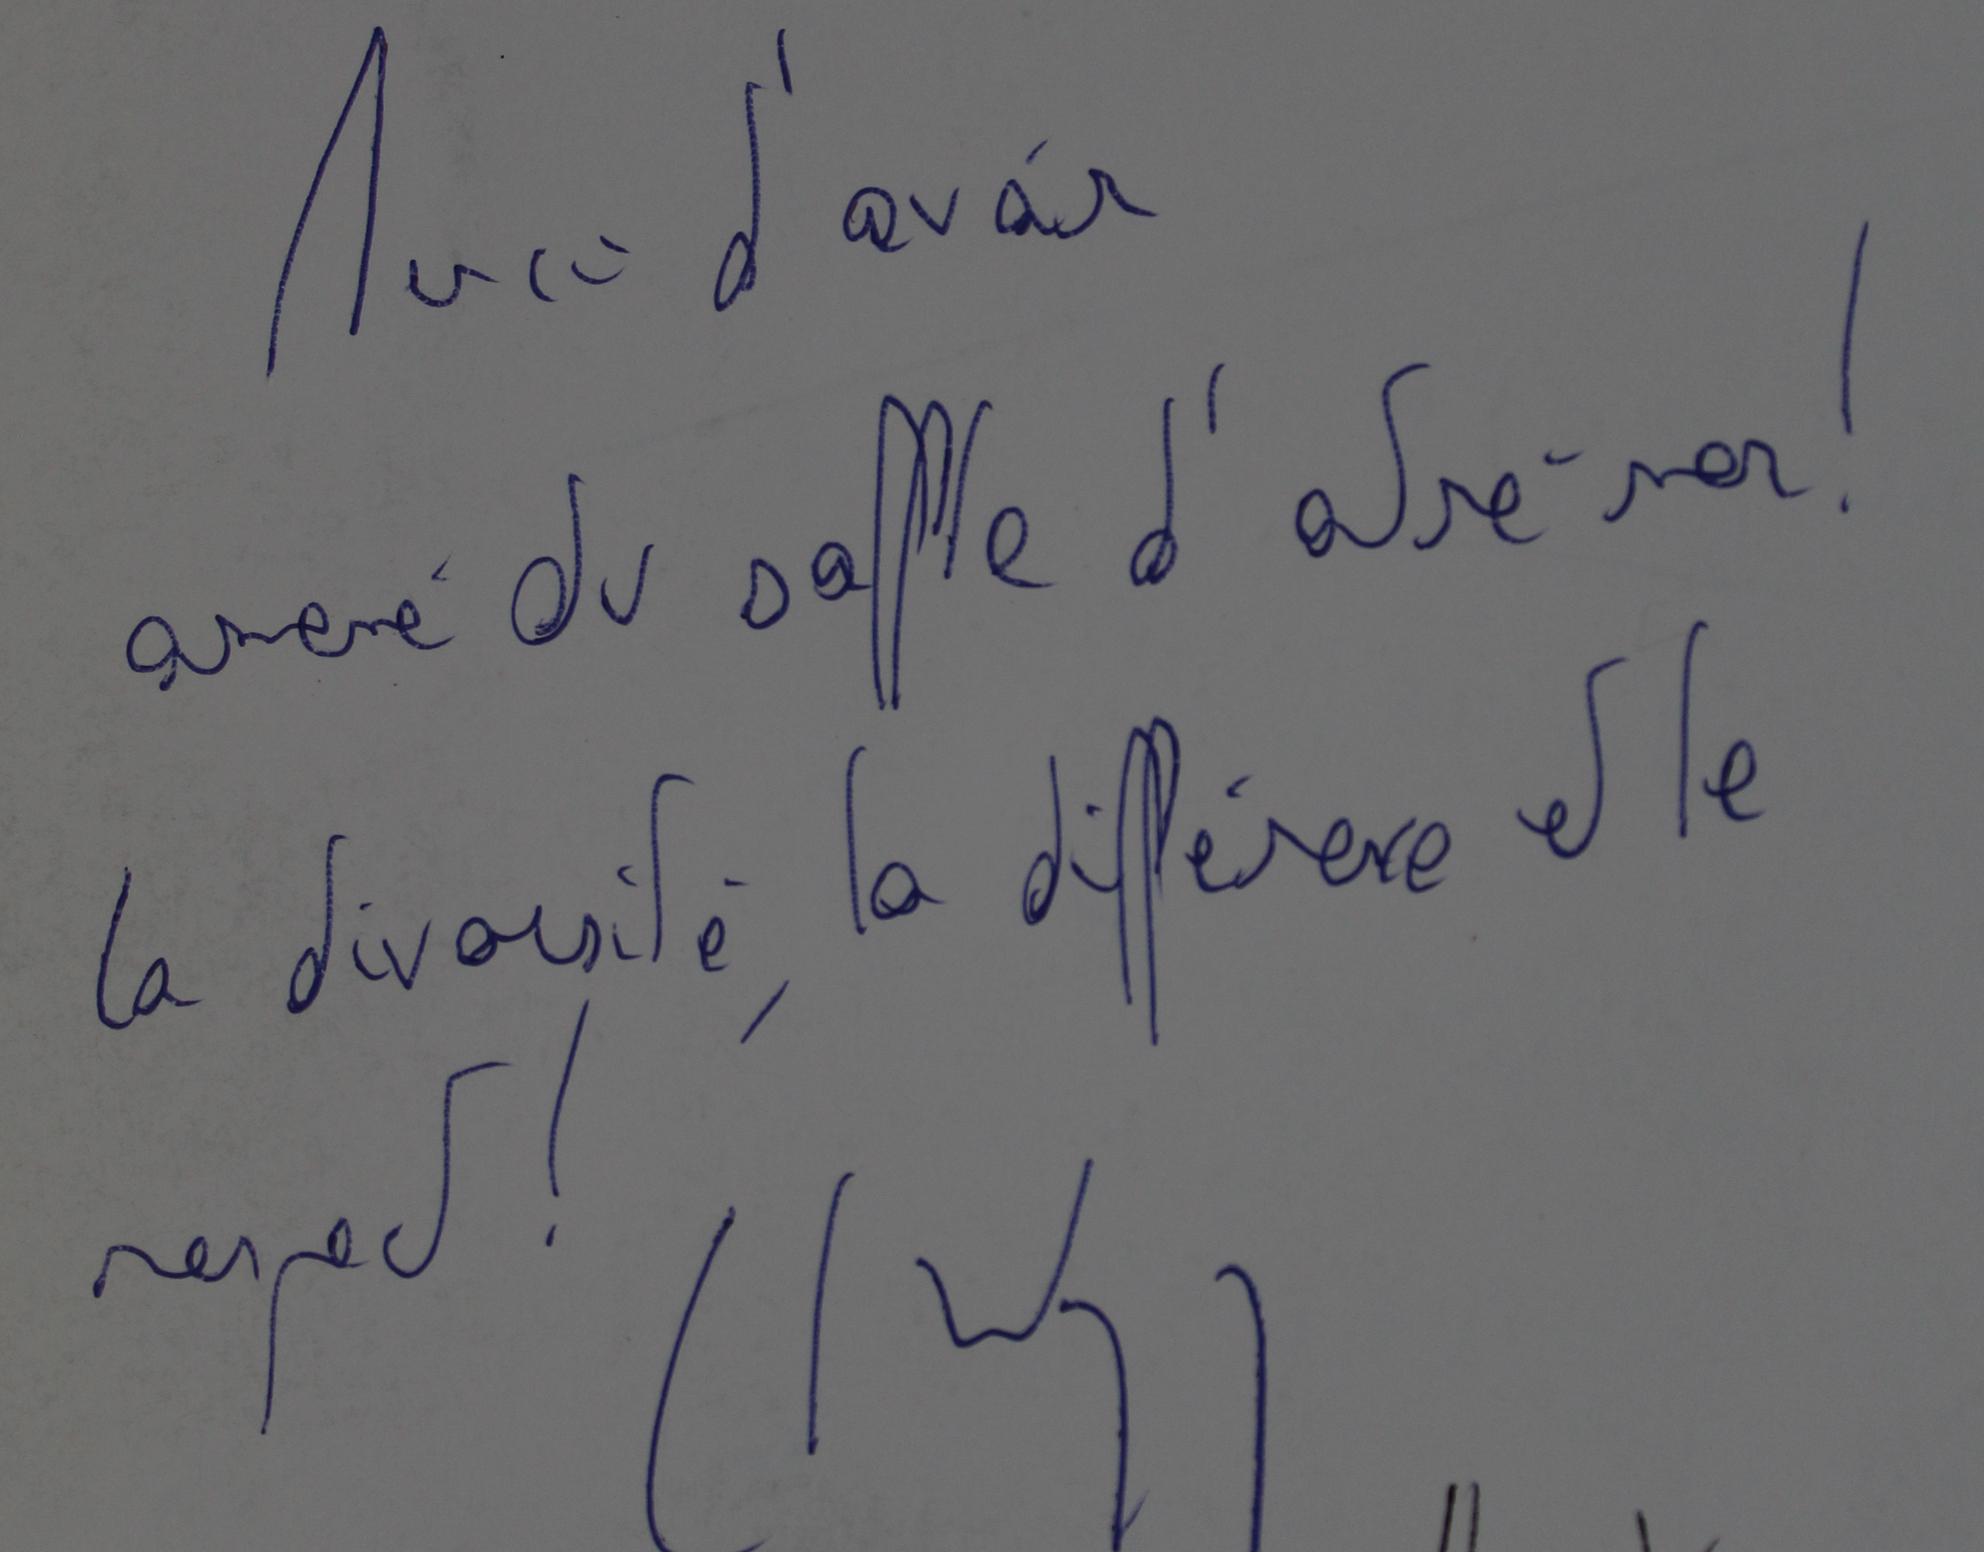 Merci d'avoir
amené du souffle d'outre-mer!
la diversité, la différence et le
respect!